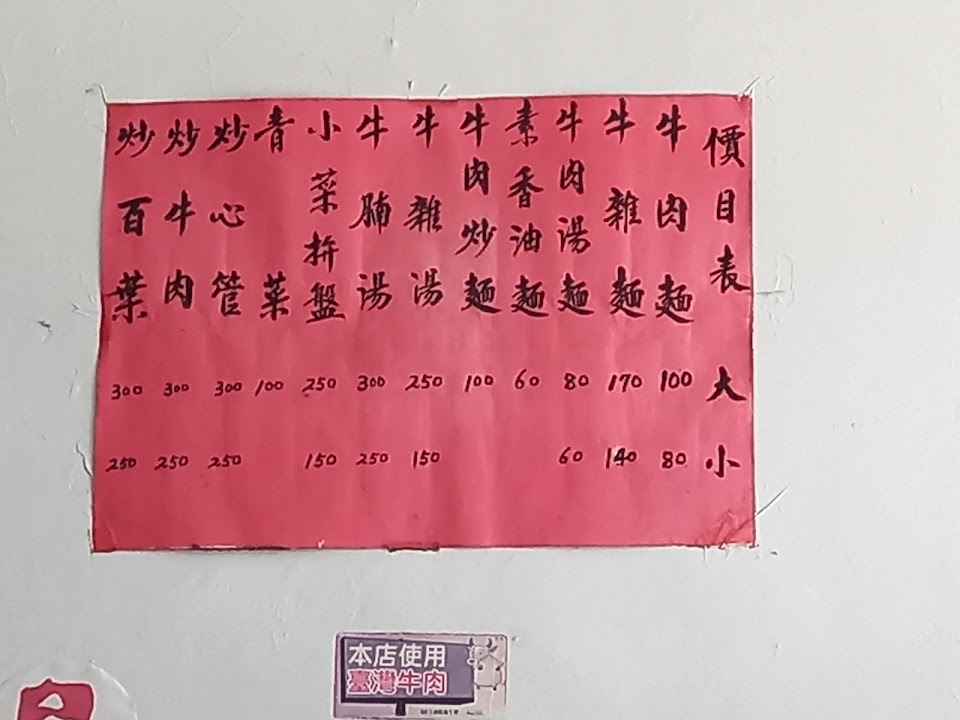 價目表 大 小
牛肉麵 100 80
牛雜麵 170 140
牛肉湯麵 80 60
素香油麵 60
牛肉炒麵 100
牛雜湯 250 150
牛腩湯 300 250
小菜拚盤 250 150
青菜 100
炒心管 300 250
炒牛肉 300 250
炒百葉 300 250
本店使用
臺灣牛肉